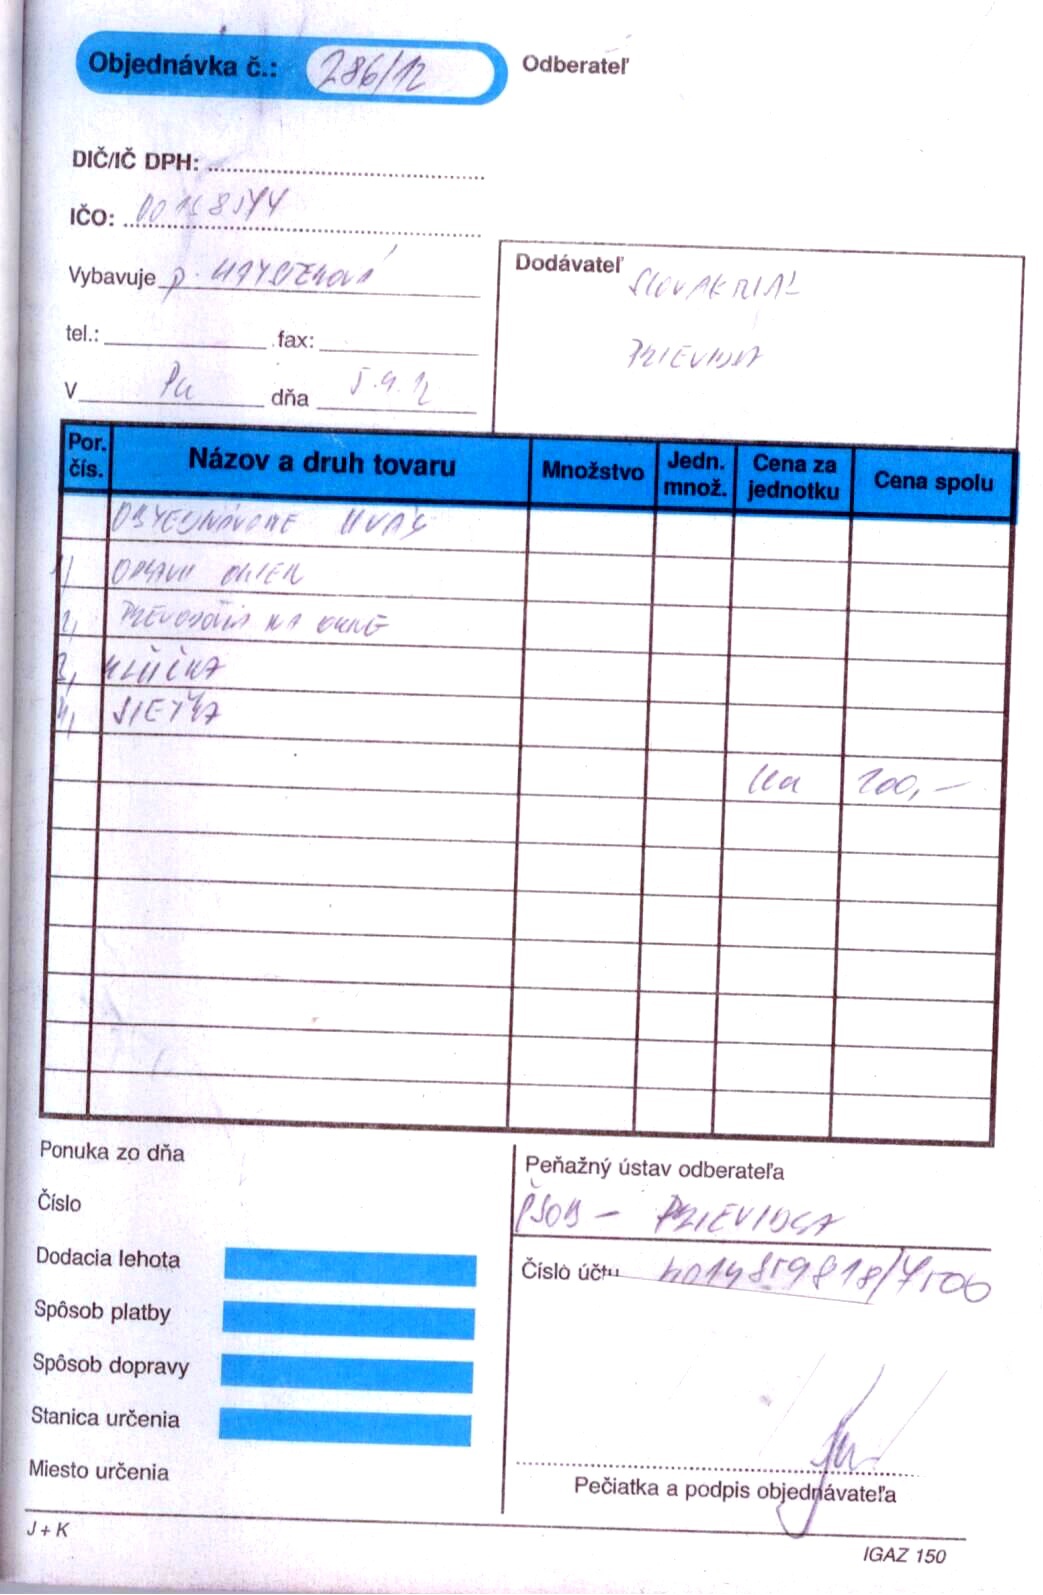 Objednávka č.: 286/12
Odberateľ
DIČ/IČ DPH:
IČO:
Vybavuje p.
tel.: fax:
V Pu dňa 5.9.12
Dodávateľ
SLOVAKTUAL
PRIEVIDZA
Por. čís. Názov a druh tovaru Množstvo Jedn. množ. Cena za jednotku Cena spolu
OBJEDNÁVAME U VÁS
1) OPRAVU OKIEN
2, NA OKNE
3, KĽUČKA
4, SIEŤKA
200,-
Ponuka zo dňa
Číslo
Dodacia lehota
Spôsob platby
Spôsob dopravy
Stanica určenia
Miesto určenia
Peňažný ústav odberateľa
ČSOB - PRIEVIDZA
Číslo účtu 4014859818/7500
Pečiatka a podpis objednávateľa
J + K
IGAZ 150